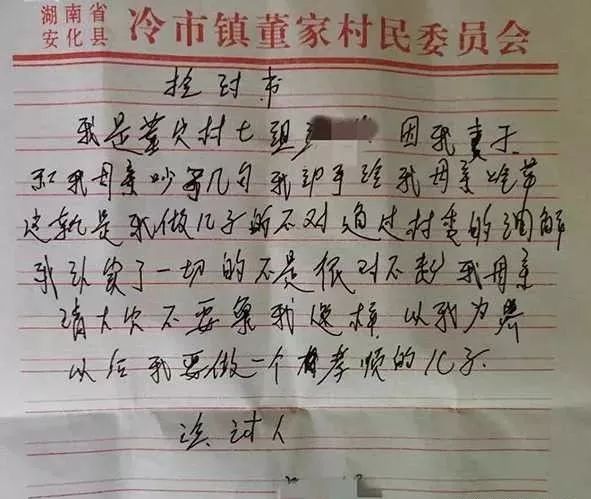 湖南省
安化县
冷市镇董家村民委员会
检讨书
我是董家村七组 因我妻子
和我母亲吵了几句 我动手给我母亲
这就是我做儿子的不对 通过村委的调解
我认实了一切的不是 很对不起我母亲
请大家不要象我这样 以我为
以后我要做一个有孝顺的儿子
检讨人